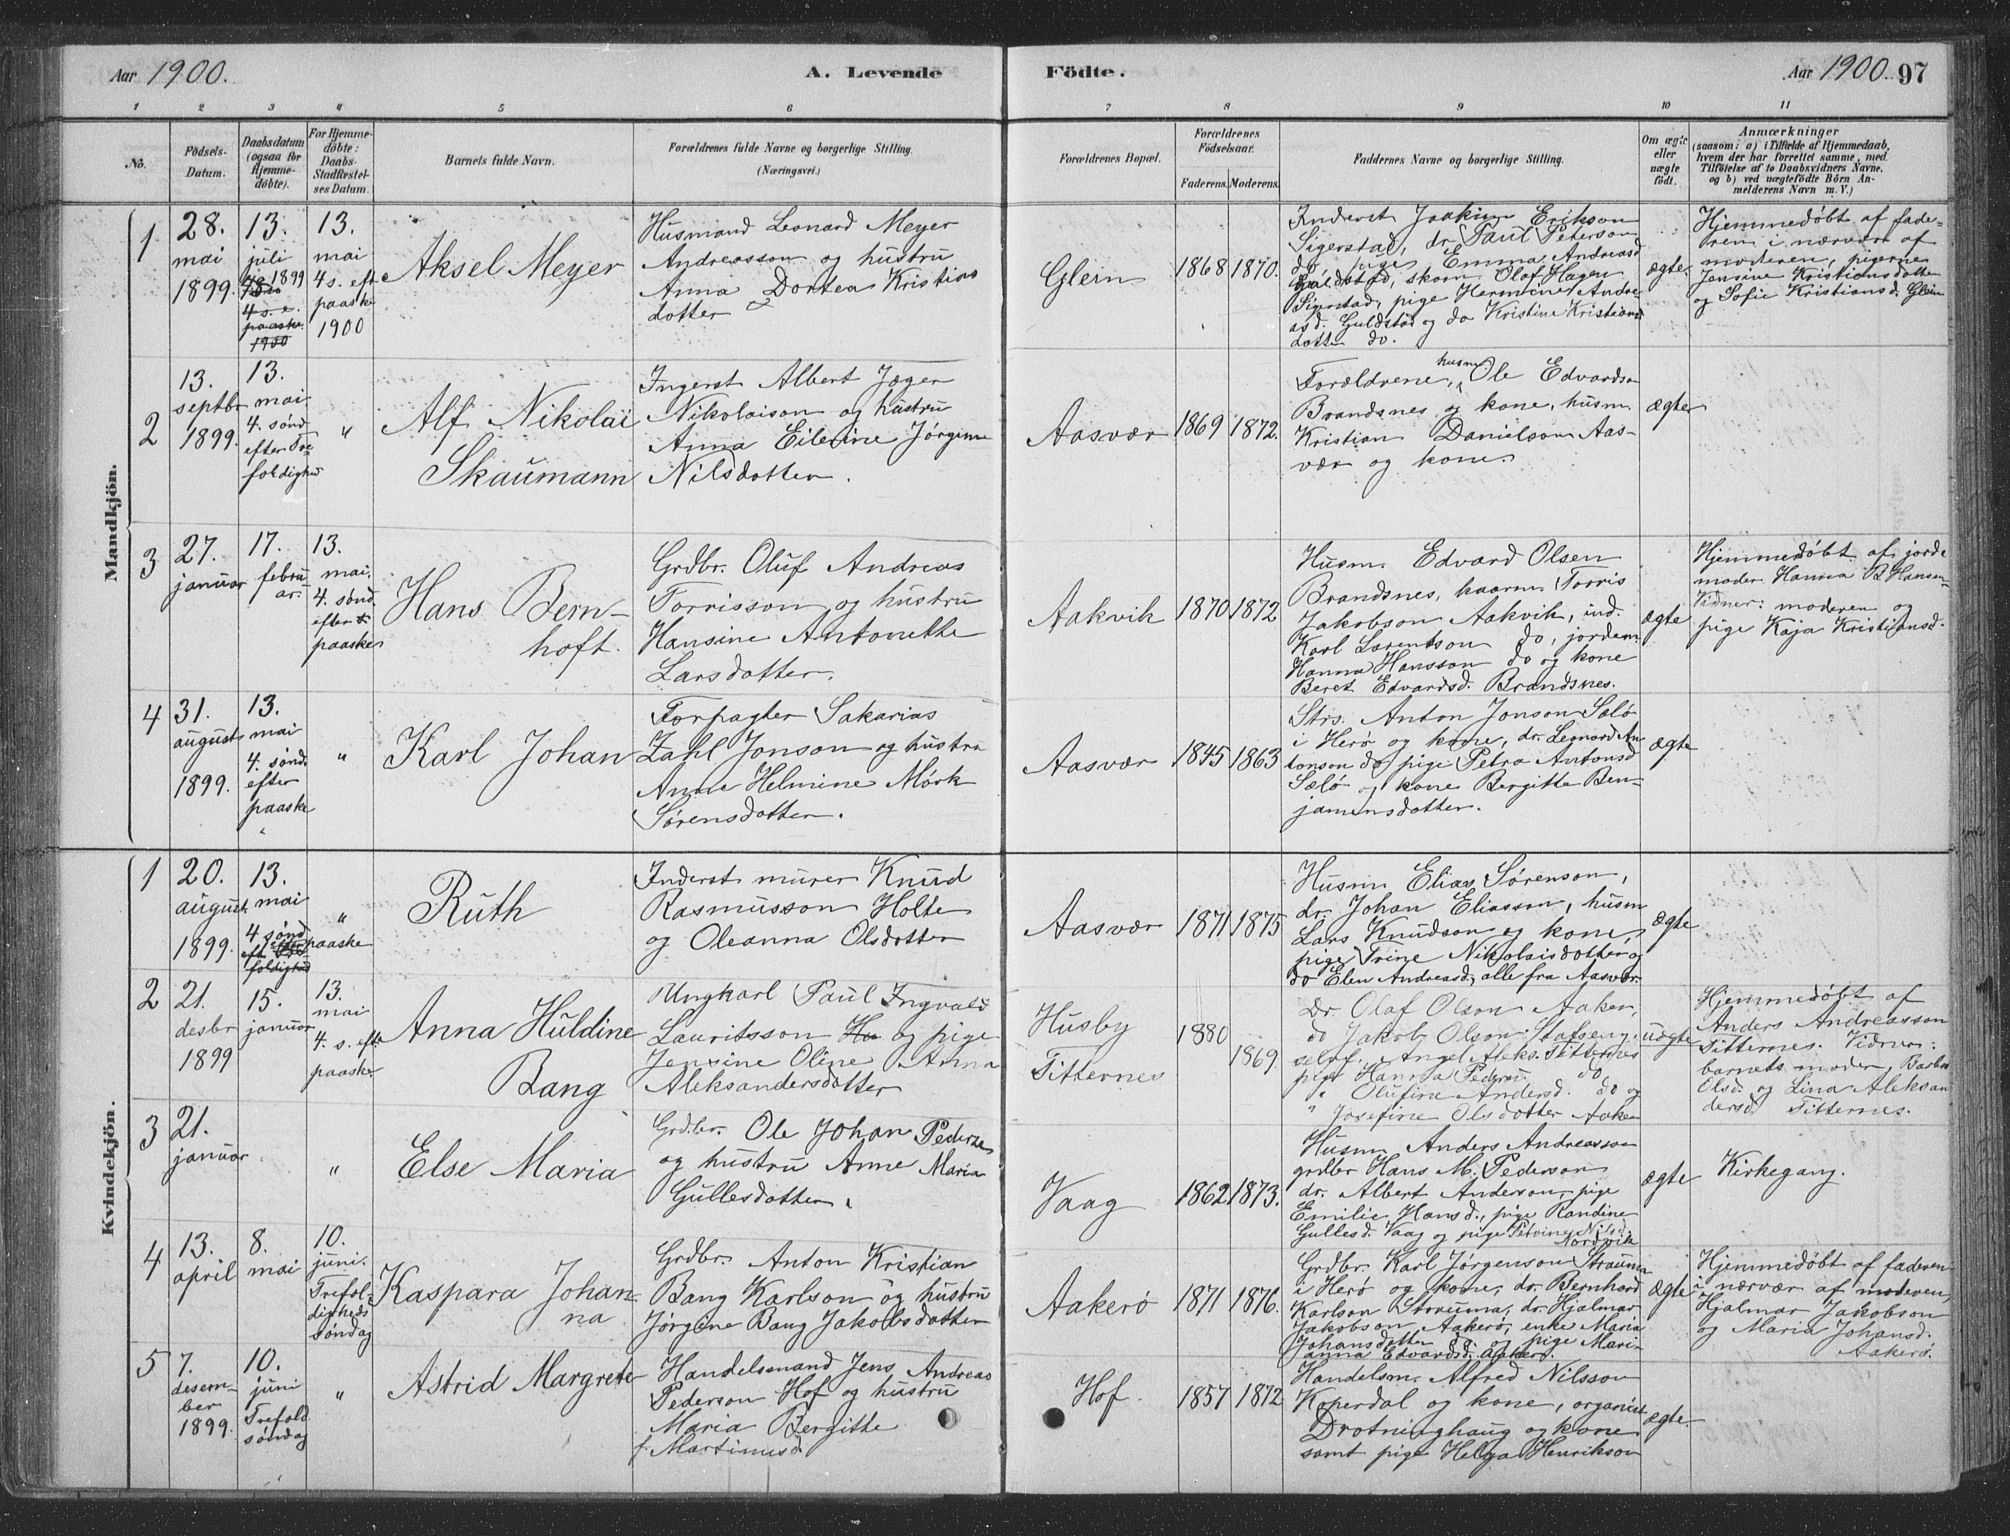 Aar 1900.
A. Levende
Födte.
Aar 1900. 97
1 2 3 4 5 6 7 8 9 10 11
No.
Födsels-
Datum.
Daabsdatum
(ogsaa for
Hjemme-
döbte).
For Hjemme-
döbte:
Daabs-
Stadfæstel-
ses Datum.
Barnets fulde Navn.
Forældrenes fulde Navne og borgerlige Stilling.
(Næringsvei.)
Forældrenes Bopæl.
Forældrenes
Födselsaar.
Faderens. Moderens.
Faddernes Navne og borgerlige Stilling.
Om ægte
eller
uægte
födt.
Anmærkninger
(saasom: a) i Tilfælde af Hjemmedaab,
hvem der har forrettet samme, med
Tilföielse af to Daabsvidners Navne.
og b) ved uægtefödte Börn An-
melderens Navn m. V.)
Mandkjön.
1
28.
mai
1899.
13.
juli
1899
4 s. e.
paaske
1900
13.
mai
4 s. eft
paaske
1900
Aksel Meyer
Husmand Leonard Meyer
Andreasson og hustru
Anna Dortea Kristians
dotter
Glein
1868 1870.
Inderst Joakim Erikson
Sigerstad, dr. Paul Peterson
do, pige Emma Andreasd
Guldstad, skom. Olaf Hagen
Sigerstad, pige Hermine Andre
asd. Guldstad og do Kristine Kristians
dotter do.
ægte
Hjemmedøbt af fade-
ren i nærvær af
moderen, pigerne
Jensine Kristiansdotter
og Sofie Kristiansd. Glein
2
13.
septbr
1899.
13.
mai
4. sønd
efter Tre
foldighed
"
Alf Nikolai
Skaumann
Ingerst Albert Jæger
Nikolaison og hustru
Anna Eilerine Jørgine
Nilsdotter.
Aasvær
1869 1872.
husm
Forældrene, Ole Edvardsn
Brandsnes og kone, husm.
Kristian Danielson Aas-
vær og kone
ægte
3
27.
januar
17.
febru
ar.
13.
mai,
4. sønd.
efter
paaske
Hans Bern-
hoft.
Grdbr. Oluf Andreas
Torrisson og hustru
Hansine Antonette
Larsdotter.
Aakvik
1870 1872
Husm. Edvard Olsen
Brandsnes, kaarm. Torris
Jakobson Aakvik, ind.
Karl Larentson do, jordem.
Hanna Hansson do og kone
Beret Edvardsd. Brandsnes.
ægte
Hjemmedøbt af jord-
moder Hanna B. Hansen
Vidner: moderen og
pige Kaja Kristiansd.
4
31.
august
1899.
13.
mai
4. sønd.
efter
paaske
"
Karl Johan
Forpagter Sakarias
Zahl Jonson og hustru
Anne Helmine Mørk
Sørensdotter.
Aasvær
1845 1863
Strs. Anton Jonson Sælø
i Herø og kone, dr. Leonard An
tonson do, pige Petra Antonsd
Sælø og kone Bergitte Ben-
jaminsdotter.
ægte
Kvindekjön.
1
20.
august
1899.
13.
mai
4 sønd
efter paaske
foldighed
"
Ruth
Inderst murer Knud
Rasmusson Holte
og Oleanna Olsdotter
Aasvær
1871 1875
Husm Elias Sørenson,
dr. Johan Eliasson, husm
Lars Knudson og kone,
pige Trine Nikolaisdotter og
do Elen Andreasd, alle fra Aasvær.
ægte
2
21.
desbr
1899
15.
januar
13.
mai
4. s. eft
paaske
Anna Huldine
Bang
Ungkarl Paul Ingvald
Lauritsson Hu og pige
Jensine Oline Anna
Aleksandersdotter
Husby
Titternes
1880
1869.
Dr. Olaf Olson Aaker,
do Jakob Olson Stafseng,
selvf. Angel Aleks. Titternes
pige Hanna Pedersd. do
" Olufine Andersd. do og
" Josefine Olsdotter Aaker
uægte
Hjemmedøbt af
Anders Andreasson
Titternes. Vidner:
barnets moder, Barbra
Olsd. og Lina Aleksan
dersd. Titternes.
3
21.
januar
"
Else Maria
Grdbr. Ole Johan Pederson
og hustru Anne Maria
Gullesdotter.
Vaag
1862 1873.
Husm Anders Andreasson
grdbr Hans M. Pederson
dr. Albert Anderson, pige
Emilie Hansd., pige Randine
Gullesd. Vaag og pige Petrine Nilsd.
Nordvik
ægte
Kirkegang.
4
13.
april
8.
mai
10.
juni.
Trefol-
digheds
søndag
Kaspara Johan-
na
Grdbr. Anton Kristian
Bang Karlson og hustru
Jørgine Bang Jakobsdotter
Aakerø
1871 1876.
Grdbr. Karl Jørgenson Strauma
i Herø og kone, dr. Bernhard
Karlson Strauma, dr. Hjalmar
Jakobson Aakerø, enke Maria
Johansdotter do. og pige Mari-
anna Edvardsd. Aakerø.
ægte
Hjemmedøbt af faderen
i nærvær af moderen,
Hjalmar Jakobson
og Maria Johansd.
Aakerø.
5
7.
desem-
ber
1899.
10.
juni
Trefold.
søndag
"
Astrid Margrete
Handelsmand Jens Andreas
Pederson Hof og hustru
Maria Bergitte
f. Martinusd
Hof.
1857 1872
Handelsm. Alfred Nilsson
Koperdal og kone, organist
Drotninghaug og kone
samt pige Helga Henrikson
ægte